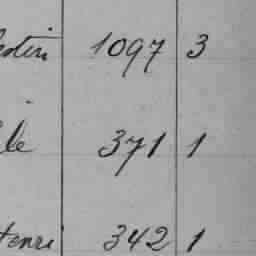 estin 1097 3
le 371 1
Henri 342 1